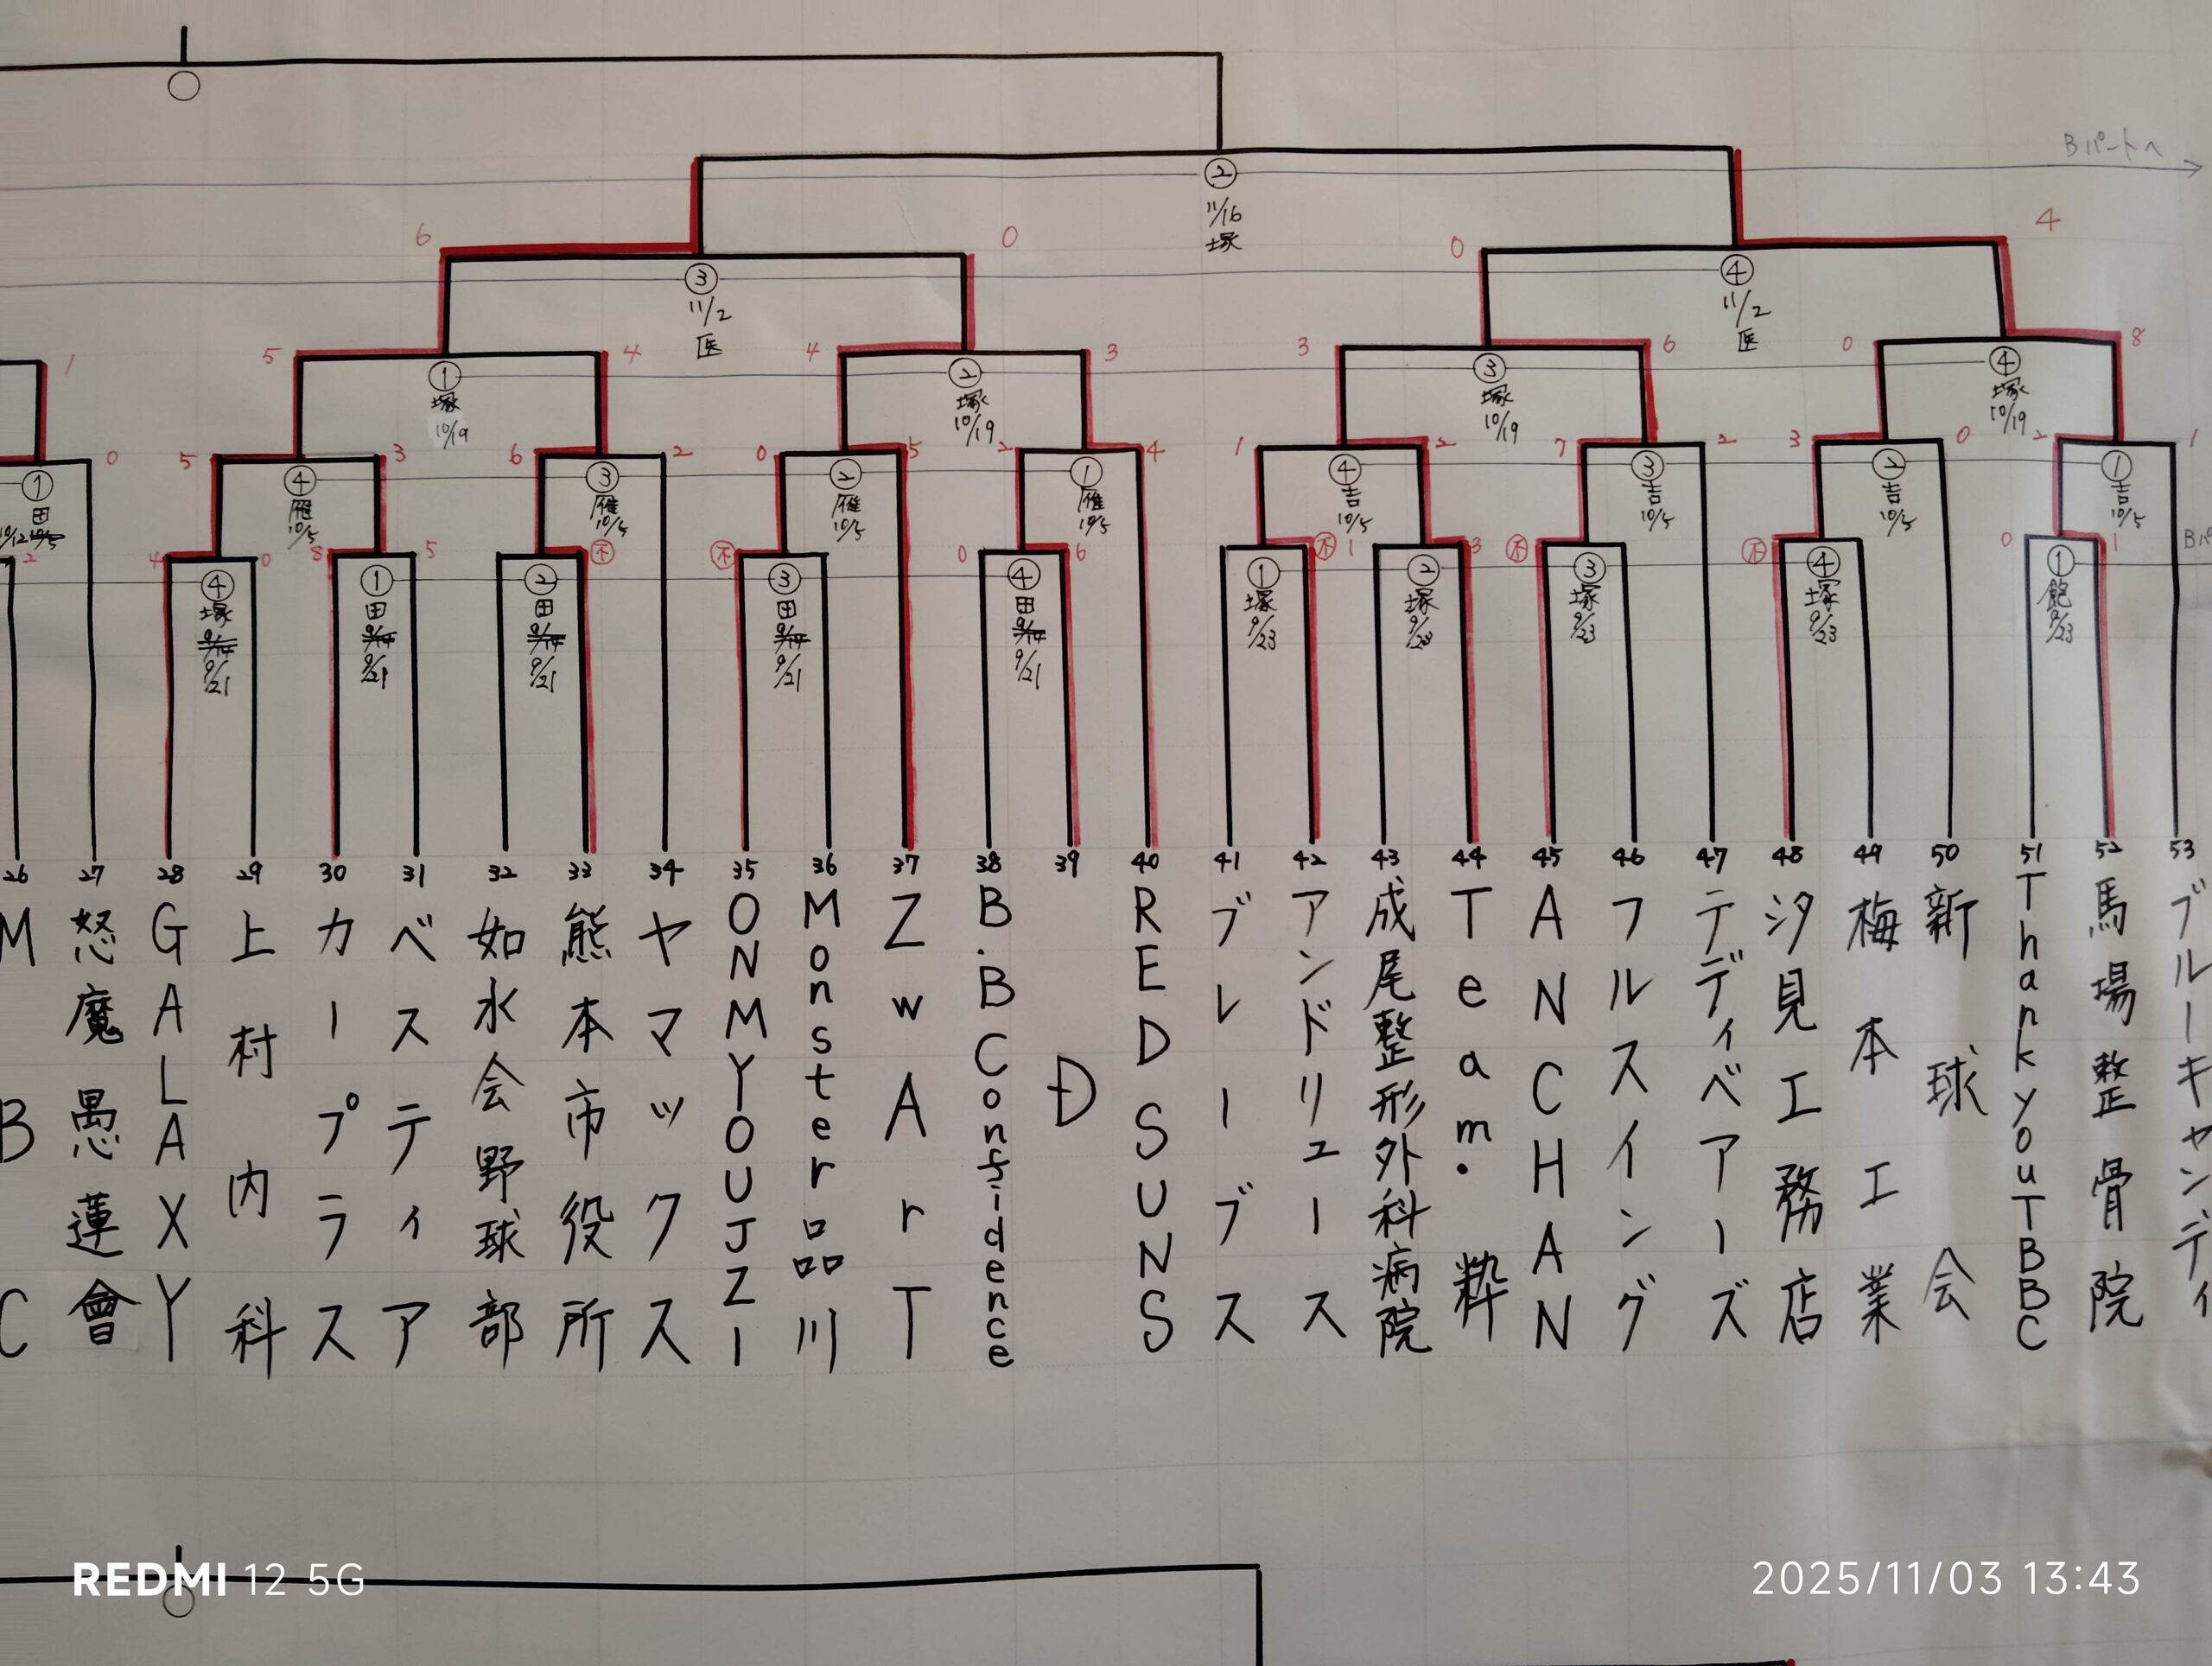 Bパートへ
②
11/16
塚
6
0
0
4
③
11/2
医
④
11/2
医
1
5
4
4
3
3
6
0
8
①
塚
10/19
②
塚
10/19
③
塚
10/19
④
塚
10/19
0
5
3
6
2
0
5
2
4
1
2
7
2
3
0
2
1
①
田
10/12 10/5
④
雁
10/5
③
雁
10/5
②
雁
10/5
①
雁
10/5
④
吉
10/5
③
吉
10/5
②
吉
10/5
①
吉
10/5
2
4
0
8
5
不
不
0
6
不
1
3
不
不
0
1
Bパ
④
塚
9/14
9/21
①
田
9/14
9/21
②
田
9/14
9/21
③
田
9/14
9/21
④
田
9/14
9/21
①
塚
9/23
②
塚
9/23
③
塚
9/23
④
塚
9/23
①
飽
9/23
26 27 28 29 30 31 32 33 34 35 36 37 38 39 40 41 42 43 44 45 46 47 48 49 50 51 52 53
M B C
怒魔愚蓮會
GALAXY
上村内科
カープラス
ベスティア
如水会野球部
熊本市役所
ヤマックス
ONMYOUJZI
Monster品川
ZwArT
B.BConfidence
Đ
RED SUNS
ブレーブス
アンドリュース
成尾整形外科病院
Team.粋
ANCHAN
フルスイング
テディベアーズ
汐見工務店
梅本工業
新球会
ThankyouTBBC
馬場整骨院
ブルーキャンディ
REDMI 12 5G
2025/11/03 13:43